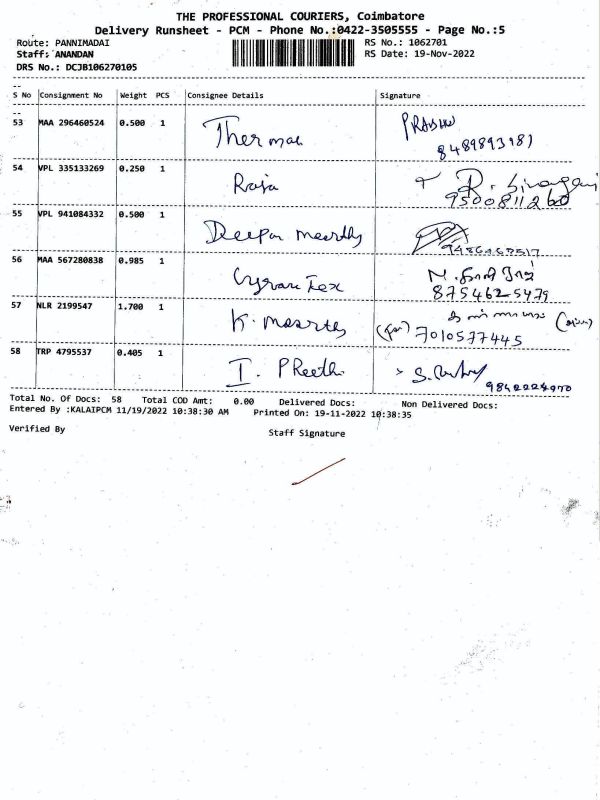 THE PROFESSIONAL COURIERS, Coimbatore
Delivery Runsheet - PCM - Phone No.:0422-3505555 - Page No.:5
Route: PANNIMADAI RS No.: 1062701
Staff: ANANDAN RS Date: 19-Nov-2022
DRS No.: DCJB106270105
S No Consignment No Weight PCS Consignee Details Signature
53 MAA 296460524 0.500 1 Thermal PRABHU
8489893181
54 VPL 335133269 0.250 1 Raja R.
9500811260
55 VPL 941084332 0.500 1 Deepan Moorthy
56 MAA 567280838 0.985 1
8754625479
57 NLR 2199547 1.700 1 K. Moorthy
7010577445
58 TRP 4795537 0.405 1 I. PReethi S.
Total No. Of Docs: 58 Total COD Amt: 0.00 Delivered Docs: Non Delivered Docs:
Entered By :KALAIPCM 11/19/2022 10:38:30 AM Printed On: 19-11-2022 10:38:35
Verified By Staff Signature